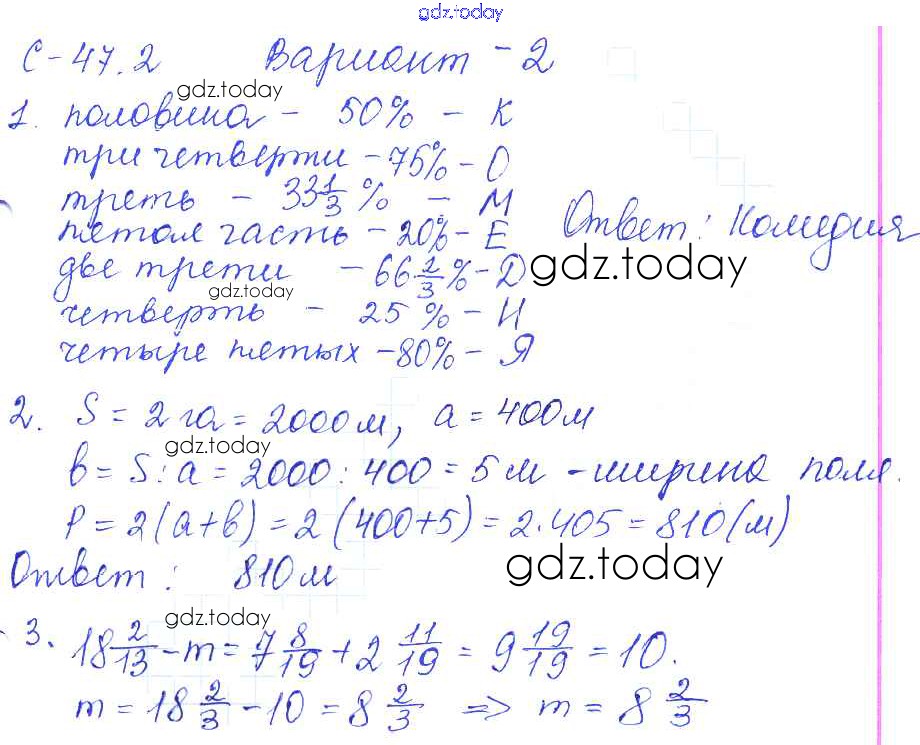 gdz.today
С-47.2 Вариант-2
gdz.today
1. половина - 50% - К
три четверти - 75% - О
треть - 33 1/3 % - М
пятая часть - 20% - Е Ответ: Комедия
две трети - 66 2/3 % - Д gdz.today
gdz.today
четверть - 25% - И
четыре пятых - 80% - Я
2. S = 2 га = 2000 м, a = 400 м
gdz.today
b = S : a = 2000 : 400 = 5 м - ширина поля.
P = 2(a+b) = 2(400+5) = 2·405 = 810 (м)
Ответ: 810 м gdz.today
gdz.today
3. 18 2/13 - m = 7 8/19 + 2 11/19 = 9 19/19 = 10.
m = 18 2/3 - 10 = 8 2/3 => m = 8 2/3